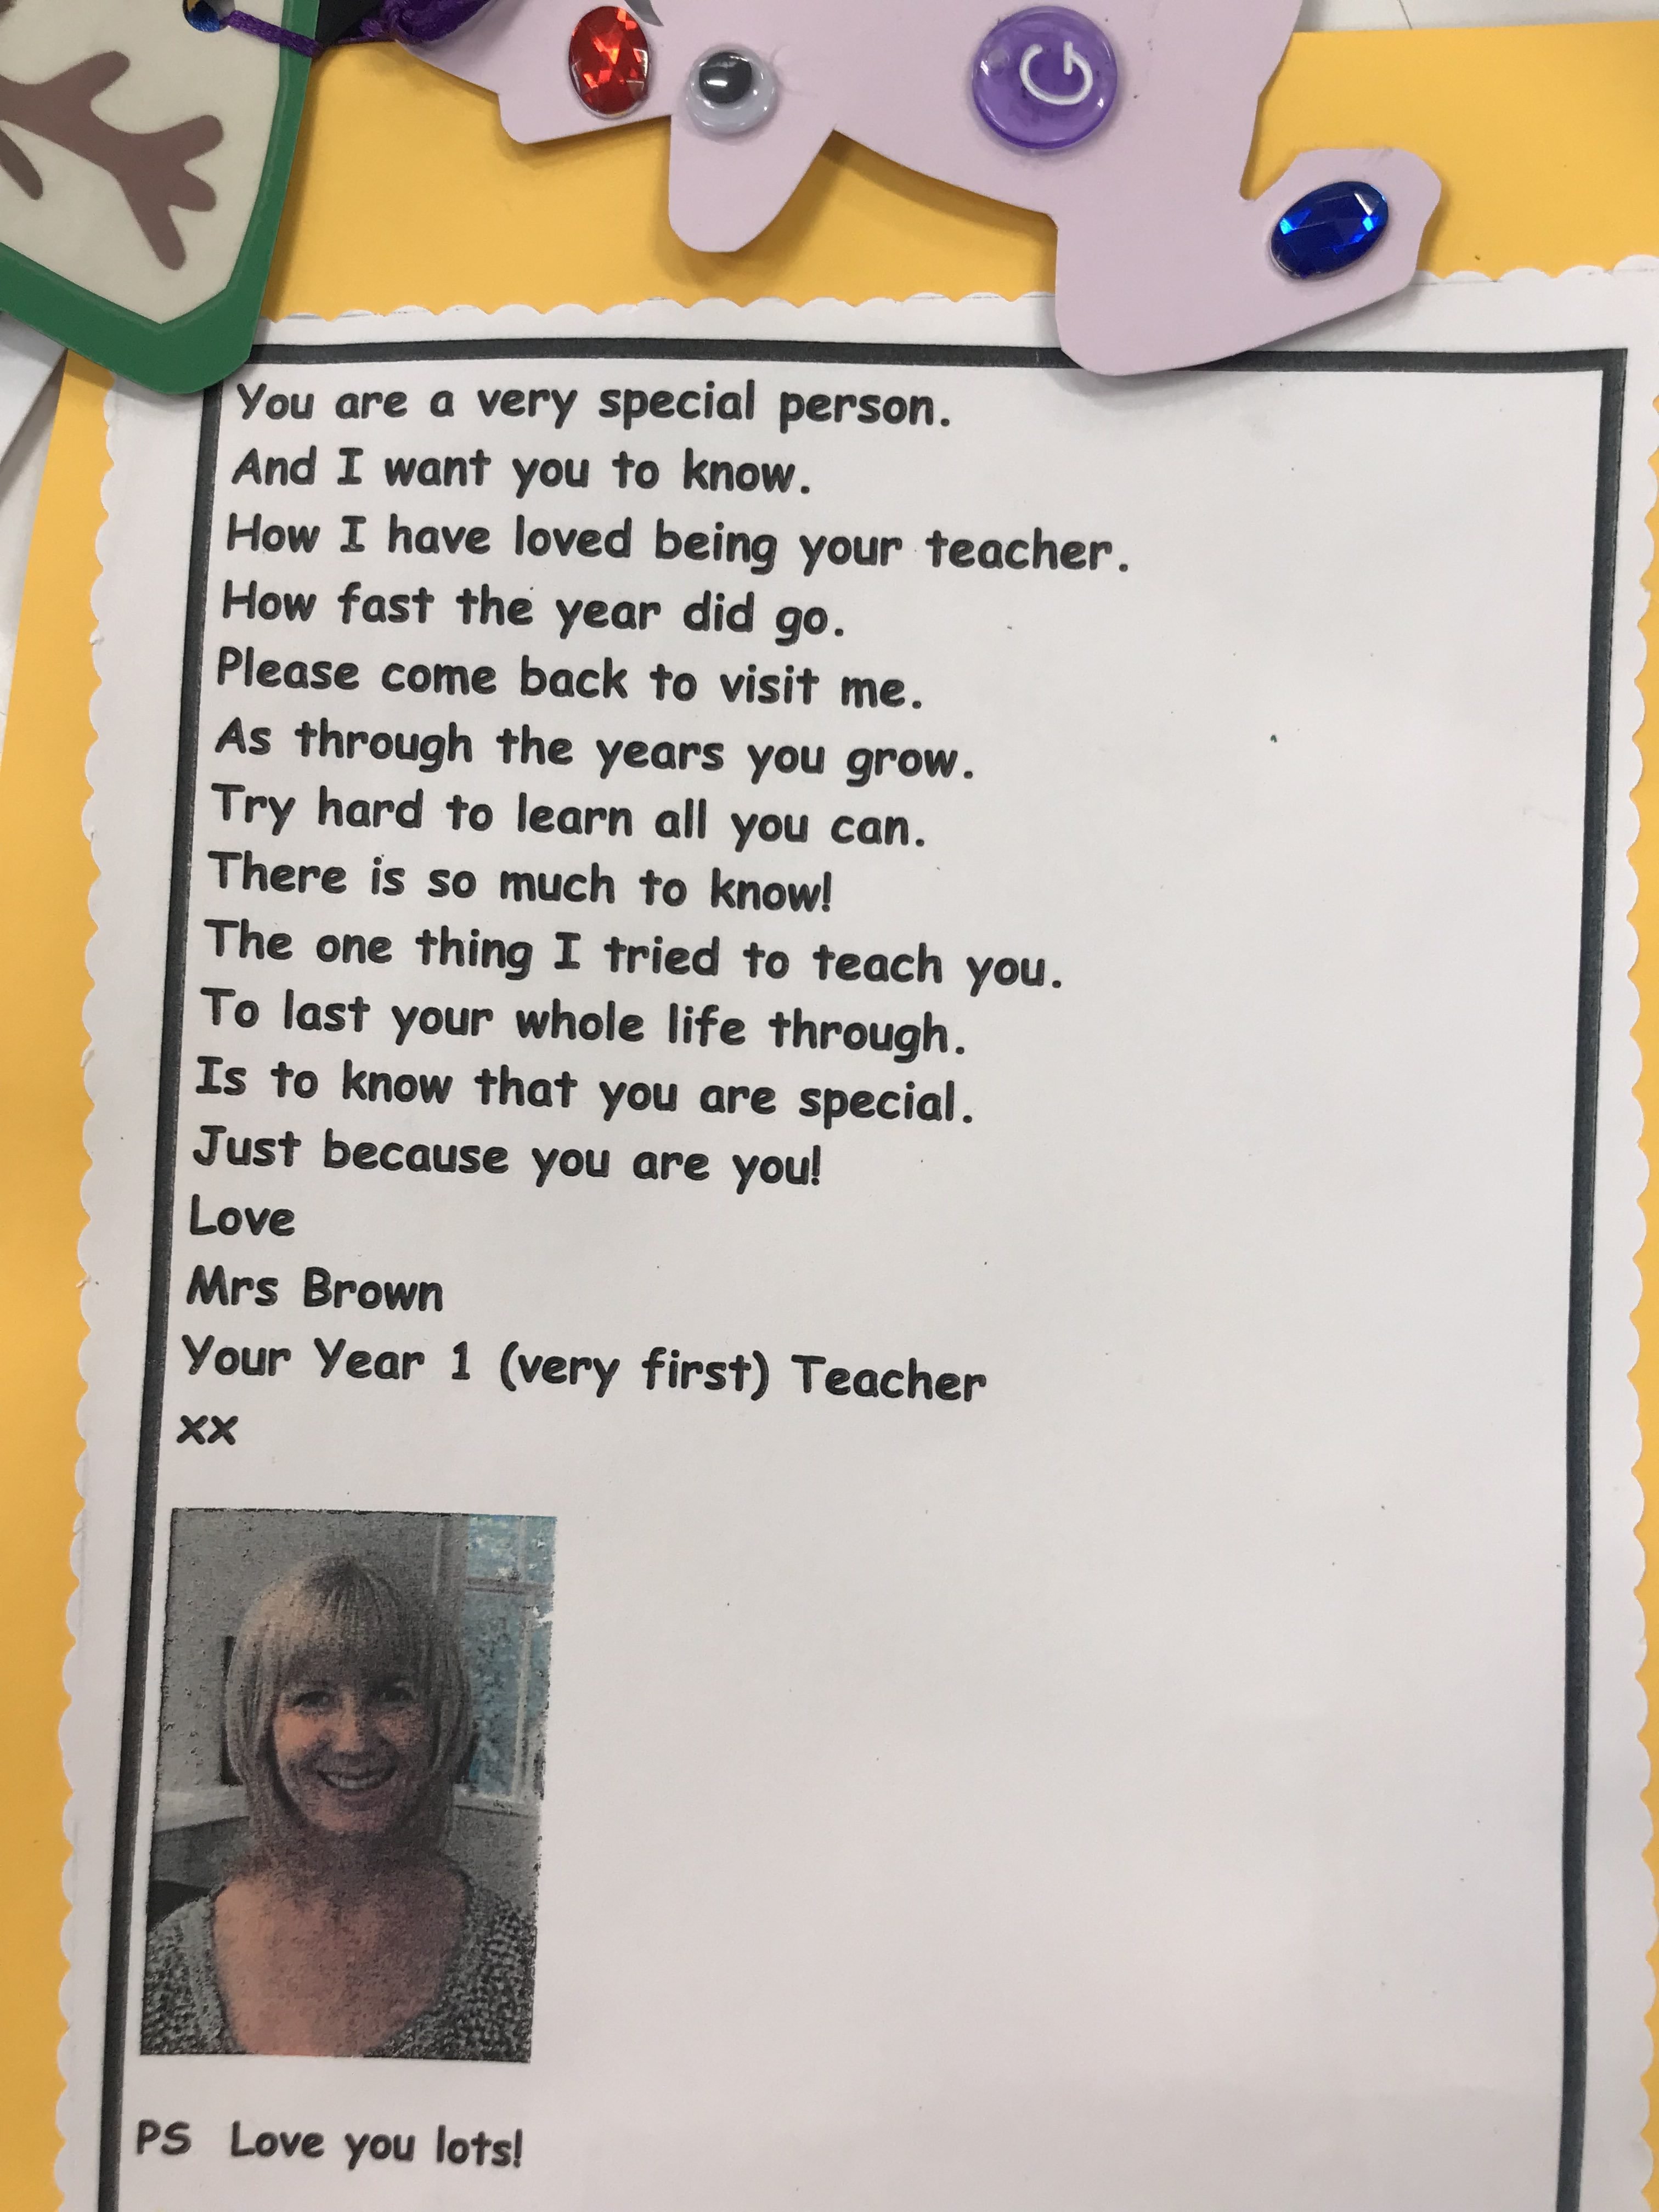 You are a very special person.
And I want you to know.
How I have loved being your teacher.
How fast the year did go.
Please come back to visit me.
As through the years you grow.
Try hard to learn all you can.
There is so much to know!
The one thing I tried to teach you.
To last your whole life through.
Is to know that you are special.
Just because you are you!
Love
Mrs Brown
Your Year 1 (very first) Teacher
xx
PS Love you lots!